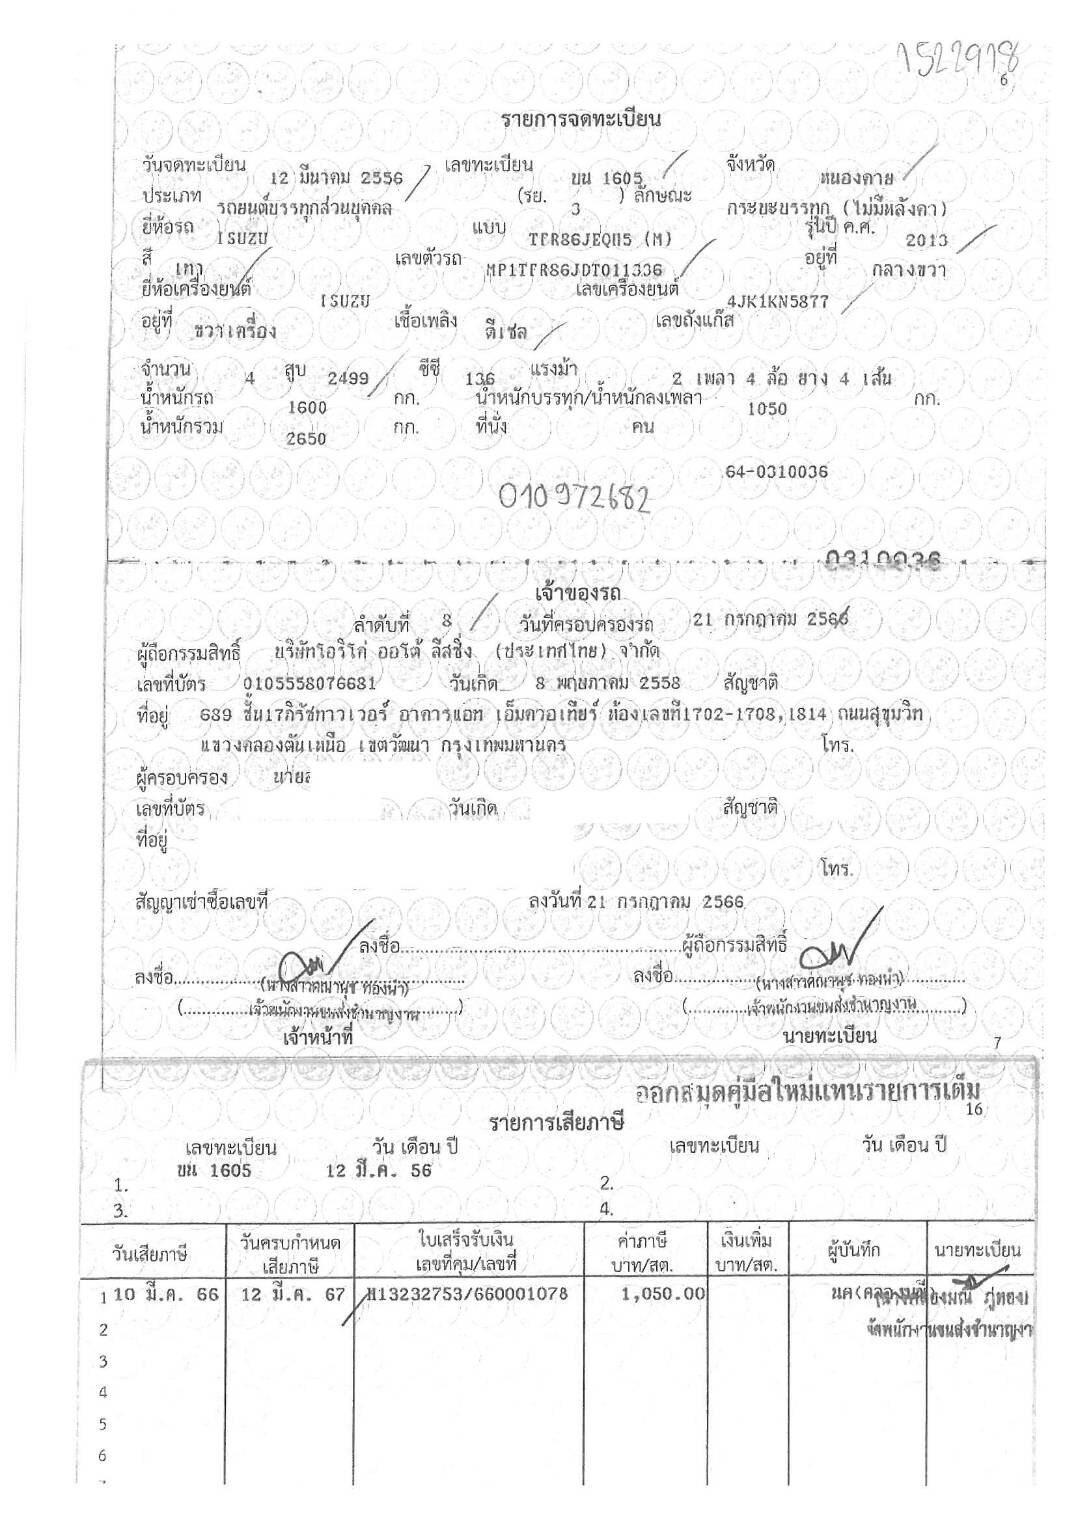 1522918
6
รายการจดทะเบียน
วันจดทะเบียน 12 มีนาคม 2556 เลขทะเบียน ขน 1605 จังหวัด หนองคาย
ประเภท รถยนต์บรรทุกส่วนบุคคล (รย. 3 ) ลักษณะ กระบะบรรทุก (ไม่มีหลังคา)
ยี่ห้อรถ ISUZU แบบ TFR86JEQH5 (M) รุ่นปี ค.ศ. 2013
สี เทา เลขตัวรถ MP1TFR86JDT011336 อยู่ที่ กลางขวา
ยี่ห้อเครื่องยนต์ ISUZU เลขเครื่องยนต์ 4JK1KN5877
อยู่ที่ ขวาเครื่อง เชื้อเพลิง ดีเซล เลขถังแก๊ส
จำนวน 4 สูบ 2499 ซีซี 136 แรงม้า 2 เพลา 4 ล้อ ยาง 4 เส้น
น้ำหนักรถ 1600 กก. น้ำหนักบรรทุก/น้ำหนักลงเพลา 1050 กก.
น้ำหนักรวม 2650 กก. ที่นั่ง คน
64-0310036
010972682
0310036
เจ้าของรถ
ลำดับที่ 8 วันที่ครอบครองรถ 21 กรกฎาคม 2566
ผู้ถือกรรมสิทธิ์ บริษัทโอริโก่ ออโต้ ลีสซิ่ง (ประเทศไทย) จำกัด
เลขที่บัตร 0105558076681 วันเกิด 8 พฤษภาคม 2558 สัญชาติ
ที่อยู่ 689 ชั้น17ภิรัชทาวเวอร์ อาคารแอท เอ็มควอเทียร์ ห้องเลขที่1702-1708,1814 ถนนสุขุมวิท
แขวงคลองตันเหนือ เขตวัฒนา กรุงเทพมหานคร โทร.
ผู้ครอบครอง นาย
เลขที่บัตร วันเกิด สัญชาติ
ที่อยู่
โทร.
สัญญาเช่าซื้อเลขที่ ลงวันที่ 21 กรกฎาคม 2566
ลงชื่อ..........ผู้ถือกรรมสิทธิ์
ลงชื่อ.......... ลงชื่อ..........
(นางสาวคณานุช ทองนำ) (นางสาวคณานุช ทองนำ)
(เจ้าพนักงานขนส่งชำนาญงาน) (เจ้าพนักงานขนส่งชำนาญงาน)
เจ้าหน้าที่ นายทะเบียน
7
ออกสมุดคู่มือใหม่แทนรายการเต็ม
16
รายการเสียภาษี
เลขทะเบียน วัน เดือน ปี เลขทะเบียน วัน เดือน ปี
ขน 1605 12 มี.ค. 56
1. 2.
3. 4.
วันเสียภาษี วันครบกำหนดเสียภาษี ใบเสร็จรับเงิน เลขที่คุม/เลขที่ ค่าภาษี บาท/สต. เงินเพิ่ม บาท/สต. ผู้บันทึก นายทะเบียน
1 10 มี.ค. 66 12 มี.ค. 67 H13232753/660001078 1,050.00
2 เจ้าพนักงานขนส่งชำนาญงา
3
4
5
6